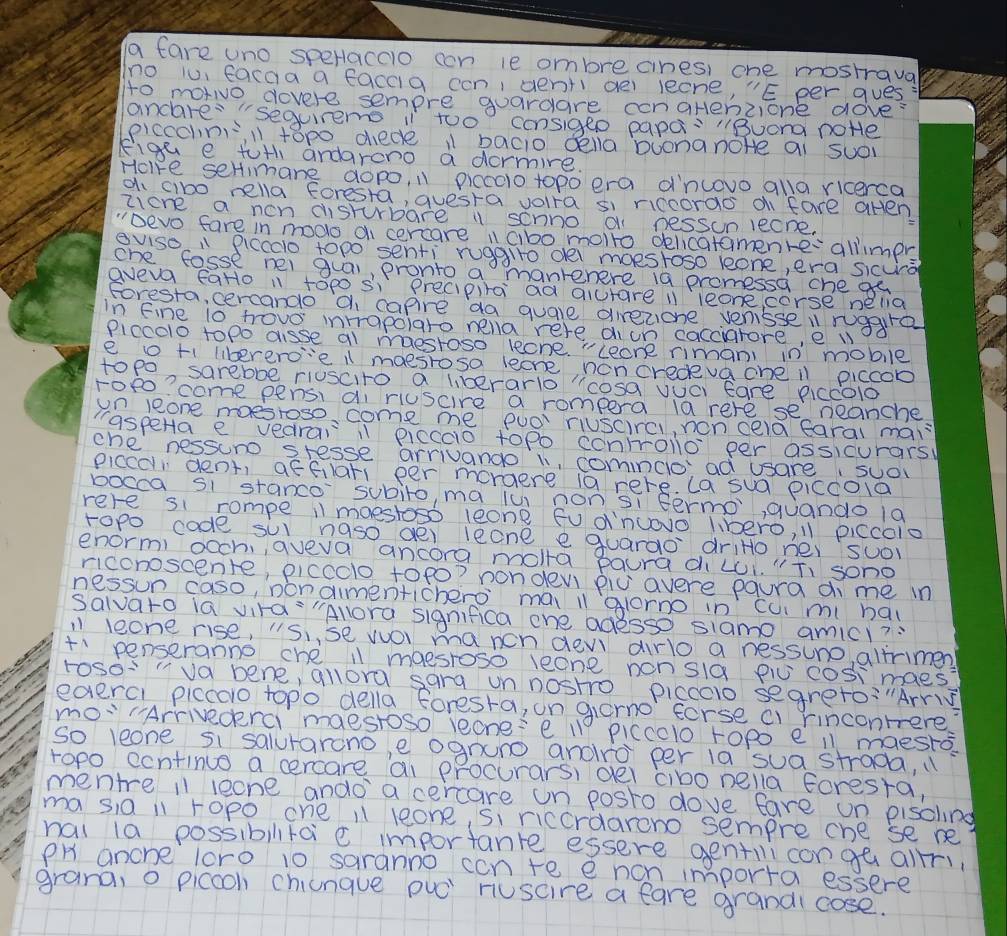 a fare uno spettaccio con le ombre cinesi che mostrava
no lui faccia a faccia con i denti del leone, "E per ques=
to motivo dovere sempre guardare con attenzione dove
andare" "Seguiremo il tuo consiglio papà" "Buona notte
piccolini" il topo diede il bacio della buonanotte ai suoi
figli e tutti andarono a dormire.
Molte settimane dopo, il piccolo topo era d'nuovo alla ricerca
di cibo nella foresta, questa volta si riccordò di fare atten=
zione a non disturbare il sonno di nessun leone.
"Devo fare in modo di cercare il cibo molto delicatamente" all'impr
oviso il piccolo topo sentì ruggito del maestoso leone, era sicuro
che fosse nei guai, pronto a mantenere la promessa che gli
aveva fatto il topo si precipita ad aiutare il leone, corse nella
foresta, cercando di capire da quale direzione venisse il ruggito
in fine lo trovo intrapolato nella rete di un cacciatore, e il
piccolo topo disse al maestoso leone. "Leone rimani in mobile
e io ti libererò" e il maestoso leone non credeva che il piccolo
topo sarebbe riuscito a liberarlo "cosa vuoi fare piccolo
topo? come pensi di riuscire a rompera la rete se neanche
un leone maestoso come me può riuscirci, non cela farai mai"
"aspetta e vedrai" il piccolo topo controllò per assicurarsi
che nessuno stesse arrivando lì, cominciò ad usare i suoi
piccoli denti affilati per mordere la rete. La sua piccola
bocca si stancò subito, ma lui non si fermò, quando la
rete si rompe il maestoso leone fu d'nuovo libero, il piccolo
topo cade sul naso del leone e guardò dritto nei suoi
enormi occhi, aveva ancora molta paura di Lui. "Ti sono
riconoscente, piccolo topo? non devi più avere paura di me in
nessun caso, non dimentichero mai il giorno in cui mi hai
salvato la vita" "Allora significa che adesso siamo amici?"
il leone rise, "Si, se vuoi ma non devi dirlo a nessuno altrimen
ti penseranno che il maestoso leone non sia più così maes=
toso" "Va bene, allora sara un nostro piccolo segreto" "Arriv=
ederci piccolo topo della foresta, un giorno forse ci rincontrere=
mo" "Arrivederci maestoso leone" e il piccolo topo e il maesto=
so leone si salutarono e ognuno andrò per la sua strada, il
topo continuo a cercare di procurarsi del cibo nella foresta,
mentre il leone andò a cercare un posto dove fare un pisolino
ma sia il topo che il leone, si riccordarono sempre che se ne
hai la possibilità è importante essere gentili con gli altri,
più anche loro lo saranno con te e non importa essere
grandi o piccoli chiunque può riuscire a fare grandi cose.